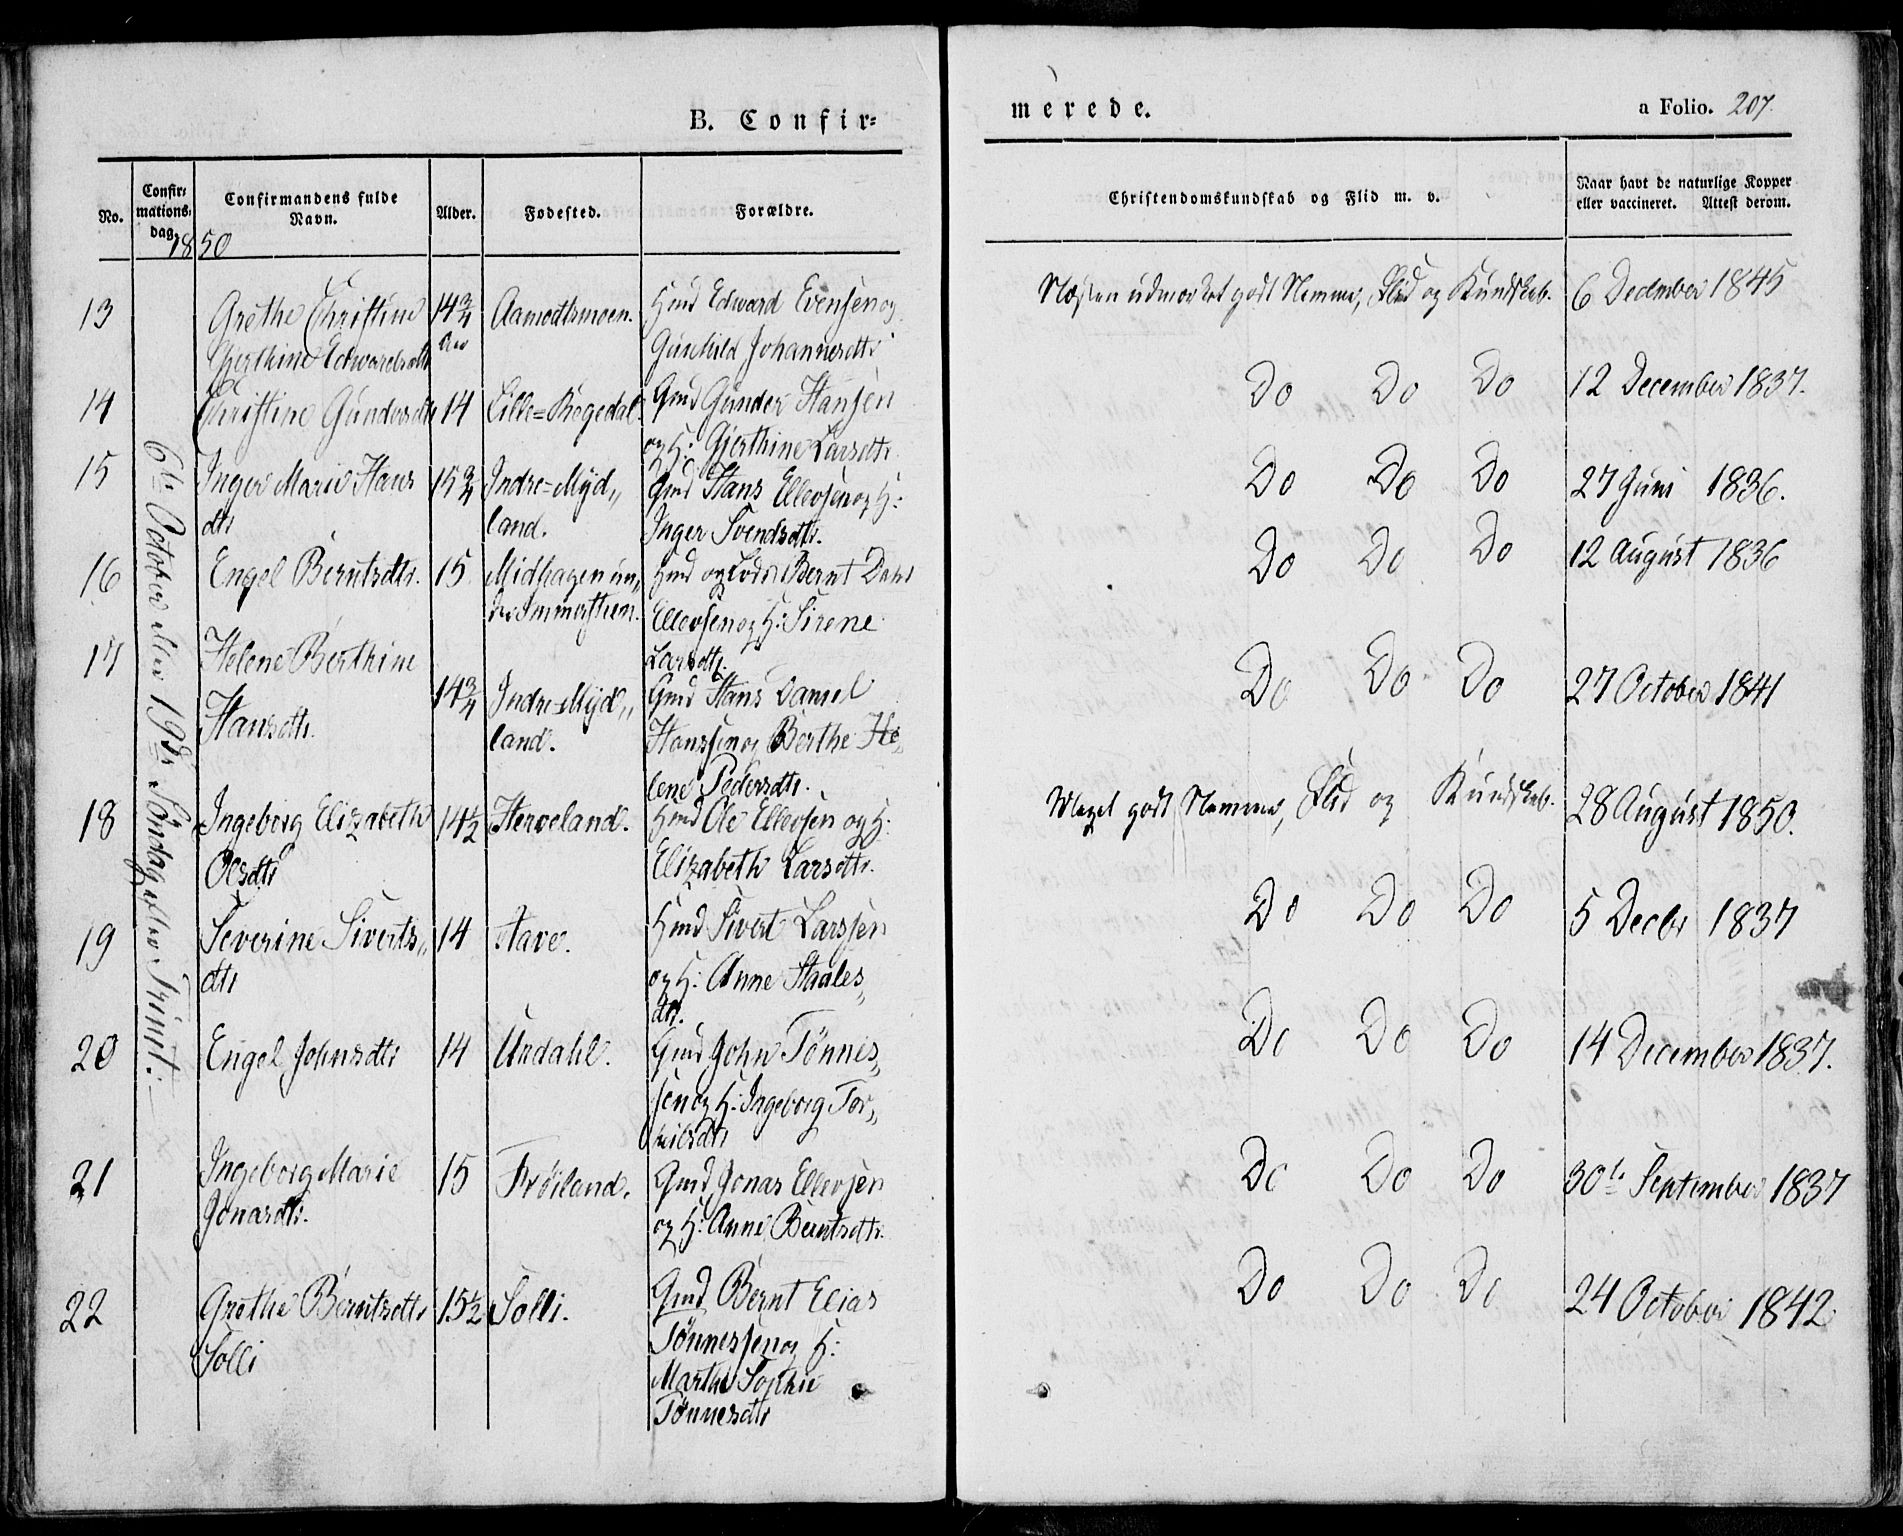 B. Confir=
merede.
a Folio. 207.
No.
Confir=
mations=
dag.
Confirmandens fulde
Navn.
Alder.
Fødested.
Forældre.
Christendomskundskab og Flid m. v.
Naar havt de naturlige Kopper
eller vaccineret. Attest derom.
1850
6te October eller 19de Søndag efter Trinit:
13
Grethe Christine
Gjerthine Edwardsdtr
14¾
Aar
Aamodtsmoen.
Hmd Edward Evensen og
Gunhild Johannesdtr
Næsten udmærket godt Nemme, Flid og Kundskab.
6 December 1845
14
Christine Gundersdtr
14
Lille=Rægedal.
Gmd Gunder Hansen
og H: Gjerthine Larsdtr.
Do Do Do
12 December 1837.
15
Inger Marie Hans
dtr
15¾
Indre=Myd„
land.
Gmd Hans Ellevsen og H:
Inger Svendsdtr.
Do Do Do
27 Juni 1836.
16
Engel Berntsdtr.
15
Midhagen un„
der Immerstein.
Hmd og Lods Bernt Dahl
Ellevsen og H: Sirene
Larsdtr.
Do Do Do
12 August 1836
17
Helene Berthine
Hansdtr.
14¾
Indre=Myd„
land.
Gmd Hans Daniel
Hanssen og Berthe He„
lene Pedersdtr.
Do Do Do
27 October 1841
18
Ingeborg Elizabeth
Olsdtr
14½
Herveland.
Hmd Ole Ellevsen og H:
Elizabeth Larsdtr.
Meget godt Nemme, Flid og Kundskab.
28 August 1850.
19
Severine Siverts„
dtr
14
Aave.
Hmd Sivert Larssen
og H: Anne Staales„
dtr.
Do Do Do
5 Decbr 1837
20
Engel Johnsdtr
14
Urdahl.
Gmd John Tønnes„
sen og H: Ingeborg Tor„
kilsdtr
Do Do Do
14 December 1837.
21
Ingeborg Marie
Jonasdtr.
15
Frøiland.
Gmd Jonas Ellevsen
og H: Anne Berntsdtr.
Do Do Do
30te September 1837
22
Grethe Berntsdtr
Solli
15½
Solli.
Gmd Bernt Elias
Tønnessen og H:
Marthe Sophie
Tønnesdtr
Do Do Do
24 October 1842.